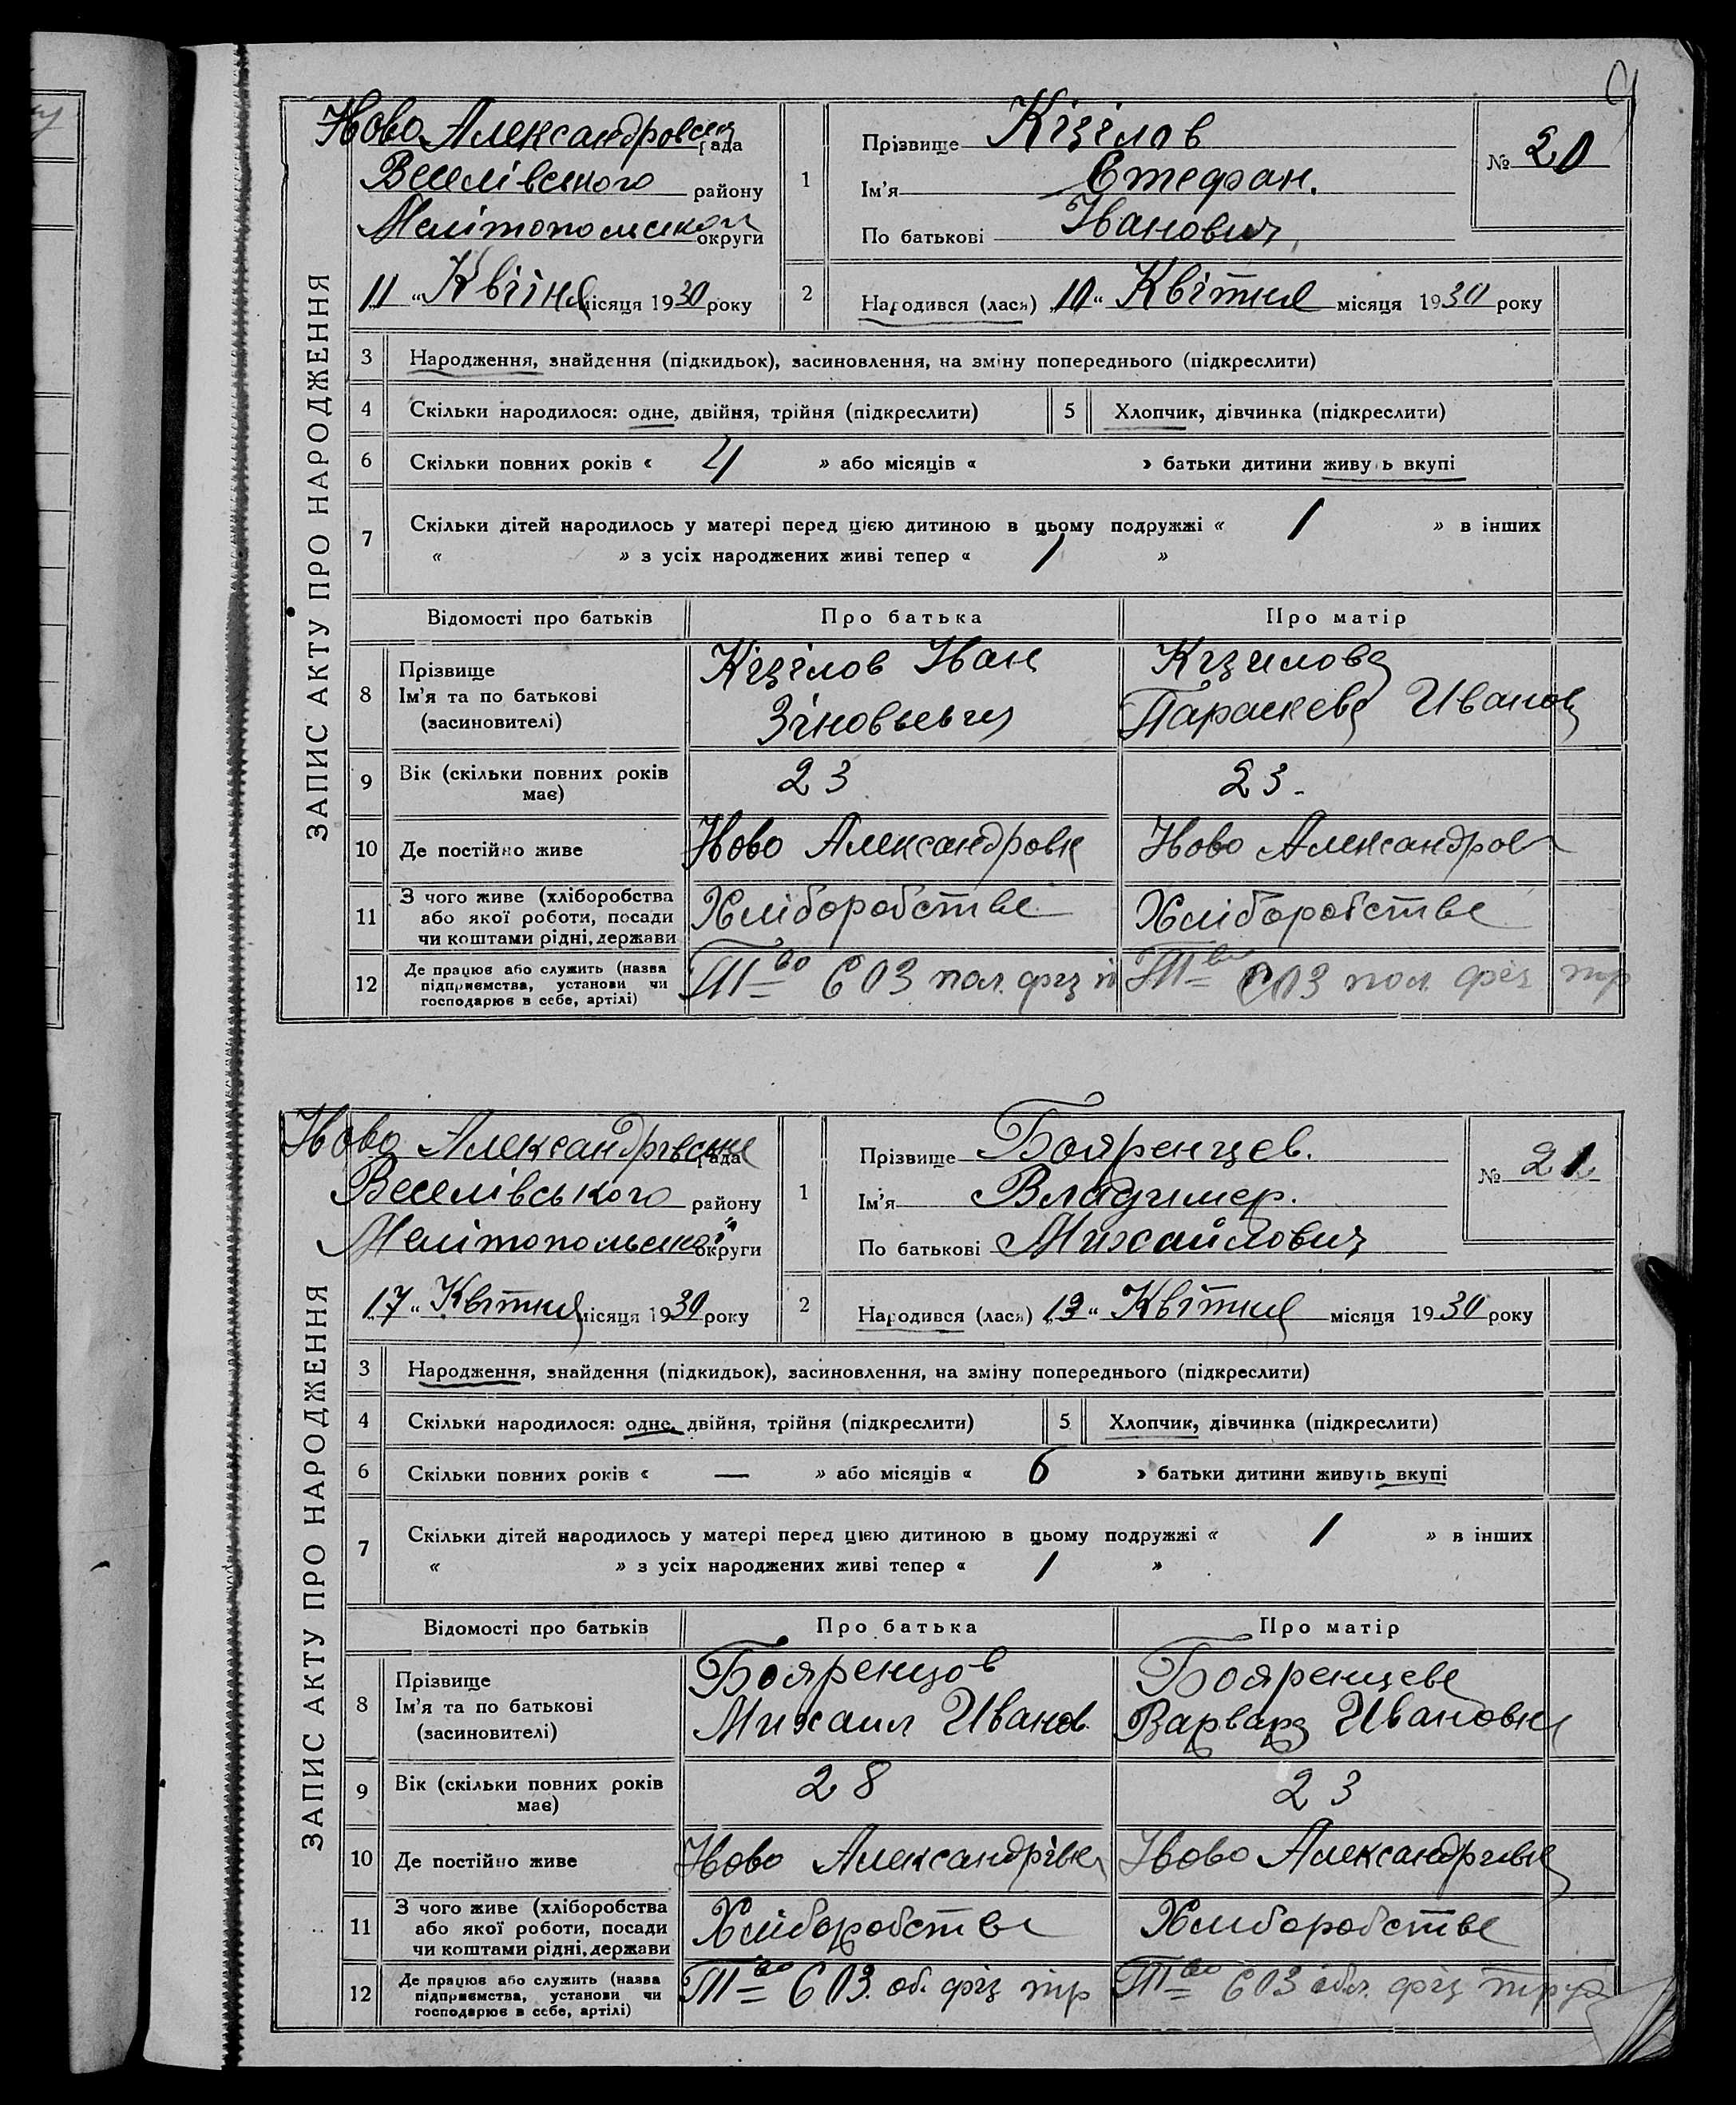 9
ЗАПИС АКТУ ПРО НАРОДЖЕННЯ
Ново Александровск рада
Веселівського району
Мелітопольской округи
11 „ Квітня місяця 1930 року
1
Прізвище Кізілов
Ім'я Стефан.
По батькові Іванович
№ 20
2
Народився (лася) „ 10 “ Квітня місяця 1930 року
3 Народження, знайдення (підкидьок), засиновлення, на зміну попереднього (підкреслити)
4 Скільки народилося: одне, двійня, трійня (підкреслити) 5 Хлопчик, дівчинка (підкреслити)
6 Скільки повних років « 4 » або місяців « » батьки дитини живуть вкупі
7 Скільки дітей народилось у матері перед цією дитиною в цьому подружжі « 1 » в інших
« » з усіх народжених живі тепер « 1 »
Відомості про батьків Про батька Про матір
8
Прізвище
Ім'я та по батькові
(засиновителі)
Кізілов Иван
Зіновьевич
Кізилова
Параскева Иванов
9 Вік (скільки повних років
має)
23 23.
10 Де постійно живе Ново Александровк Ново Александров
11 З чого живе (хліборобства
або якої роботи, посади
чи коштами рідні, держави
Хліборобстве Хліборобстве
12 Де працює або служить (назва
підприємства, установи чи
господарює в себе, артілі)
Т-во СОЗ пол. физ п Т-во СОЗ пол. физ тр
ЗАПИС АКТУ ПРО НАРОДЖЕННЯ
Ново Александрівське рада
Веселівського району
Мелітопольскої округи
17 „ Квітня місяця 1930 року
1
Прізвище Бояренцев.
Ім'я Владимер.
По батькові Михайлович
№ 21
2
Народився (лася) „ 13 “ Квітня місяця 1930 року
3 Народження, знайдення (підкидьок), засиновлення, на зміну попереднього (підкреслити)
4 Скільки народилося: одне, двійня, трійня (підкреслити) 5 Хлопчик, дівчинка (підкреслити)
6 Скільки повних років « — » або місяців « 6 » батьки дитини живуть вкупі
7 Скільки дітей народилось у матері перед цією дитиною в цьому подружжі « 1 » в інших
« » з усіх народжених живі тепер « 1 »
Відомості про батьків Про батька Про матір
8
Прізвище
Ім'я та по батькові
(засиновителі)
Бояренцов
Михаил Иванов.
Бояренцева
Варвара Ивановна
9 Вік (скільки повних років
має)
28 23
10 Де постійно живе Ново Александрівка Ново Александрівка
11 З чого живе (хліборобства
або якої роботи, посади
чи коштами рідні, держави
Хліборобстве Хлиборобстве
12 Де працює або служить (назва
підприємства, установи чи
господарює в себе, артілі)
Т-во СОЗ. об. физ тр Т-во СОЗ обл. физ труд